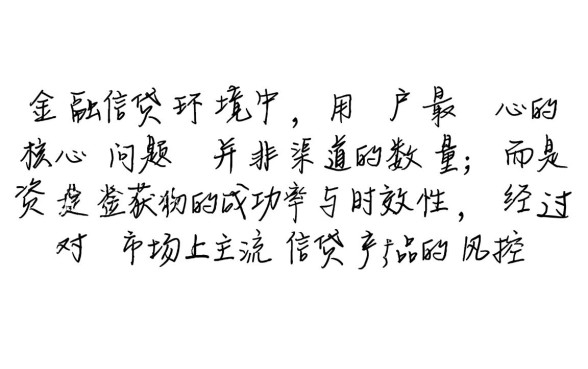 金融信贷环境中，用户最心的
核心问题并非渠道的数量；而是
资 获物的成功率与时效性，经过
对市场上主流信贷产品的风控